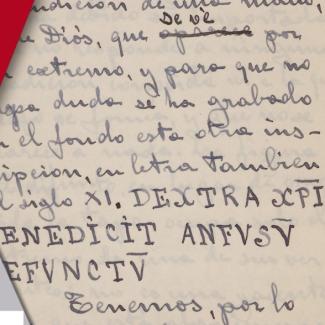 ndición de una mano,
se ve
e Diós, que aparece por
n extremo, y para que no
apa duda se ha grabado
n el fondo esta otra ins-
ipcion, en letra tambien
l siglo XI. DEXTRA XP̅I
ENEDICIT ANFVSV̅
EFVNCTV̅
Tenemos, por lo